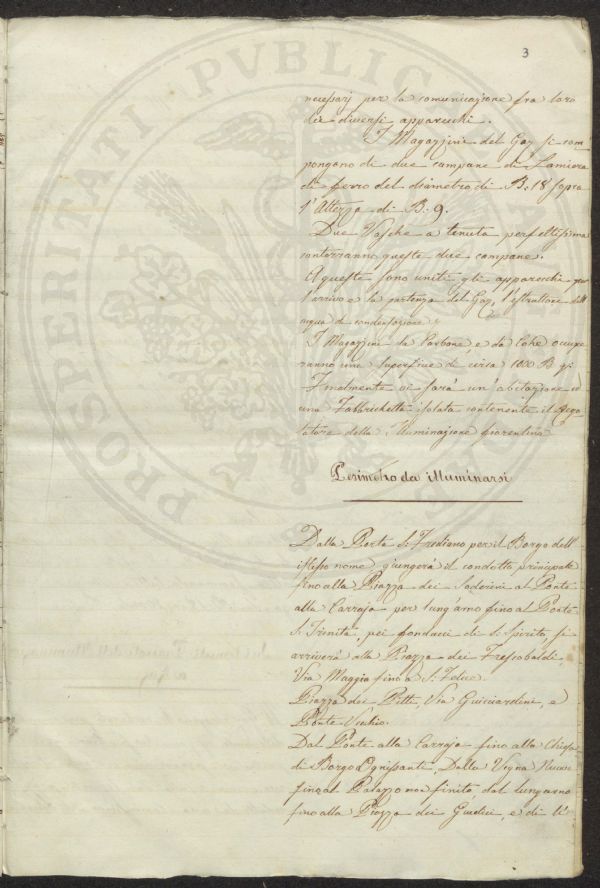 3
necessarj per la comunicazione fra loro
dei diversi apparecchi.
I Magazzini del Gaz si com
pongono di due campane di Lamiera
di ferro del diametro di B. 18 sopra
l'Altezza di B. 9.
Due Vasche a tenuta perfettissima
conterranno queste due campane.
A queste sono uniti gli apparecchi per
l'arrivo e la partenza del Gaz, l'estrattore dell'
acqua di condensazione.
I Magazzini da Carbone, e da Coke occupe
ranno una superfice di circa 1000 B. q.
Finalmente vi sarà un'abitazione e
una Fabbrichetta isolata contenente il Rego-
latore della Illuminazione fiorentina
Perimetro da illuminarsi
Dalla Porta S. Frediano per il Borgo dell'
istesso nome, giungerà il condotto principale
fino alla Piazza dei Soderini al Ponte
alla Carraja per lung'arno fino al Ponte
S. Trinita, pei fondacci di S. Spirito, si
arriverà alla Piazza dei Frescobaldi.
Via Maggio fino a S. Felice.
Piazza dei Pitti, Via Guiciardini, e
Ponte Vecchio.
Dal Ponte alla Carraja fino alla Chiesa
di Borgo Ognissanti, Dalla Vigna Nuova
fino al Palazzo non finito, dal lungarno
fino alla Piazza dei Giudici, e di lì
PROSPERITATI PVBLICAE